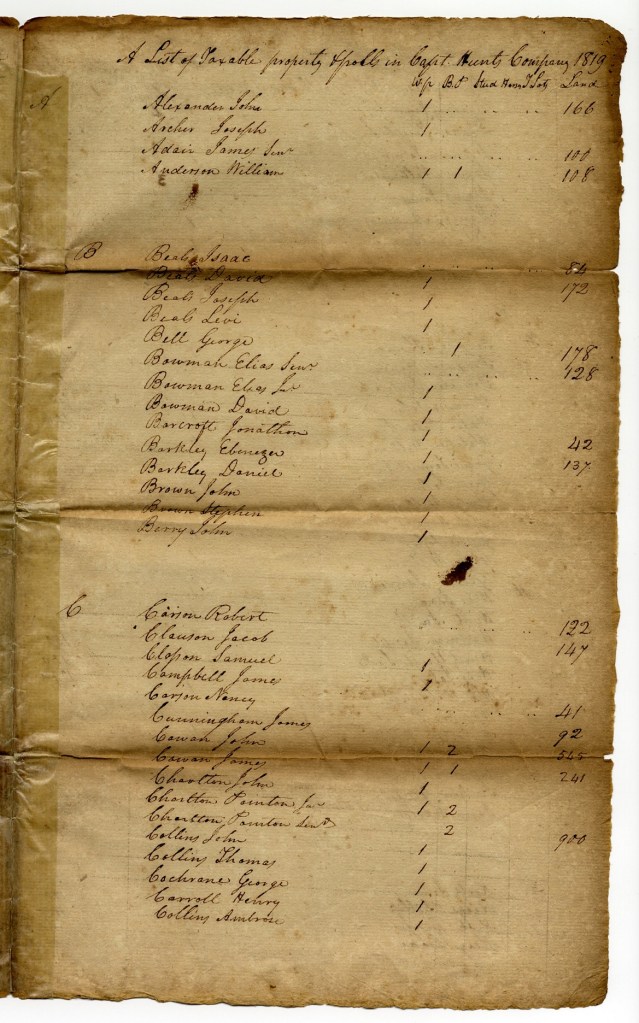 A List of Taxable property & polls in Capt. Hunts Company 1819
W.p B.P Stud Horses T Lots Land
A
Alexander John 1 .. .. .. 166
Archer Joseph 1
Adair James Senr .. .. .. .. 100
Anderson William 1 1 108
B Beals Isaac .. .. .. .. 84
Beals David 1 172
Beals Joseph 1
Beals Levi 1
Bell George 1 178
Bowman Elias Senr .. .. .. .. 128
Bowman Elias Jr 1
Bowman David 1
Barcroft Jonathon 1
Barkley Ebenezer 1 42
Barkley Daniel 1 137
Brown John 1
Brown Stephen 1
Berry John 1
C Carson Robert .. .. .. .. 122
Clauson Jacob 147
Closson Samuel 1
Campbell James 1
Carson Nancy .. .. .. .. 41
Cunningham James 92
Cowan John 1 2 545
Cowan James 1 1 241
Charlton John 1
Charlton Pointon Junr 1 2
Charlton Pointon Senr 2 900
Collins John 1
Collins Thomas 1
Cochrane George 1
Carroll Henry 1
Collins Ambrose 1